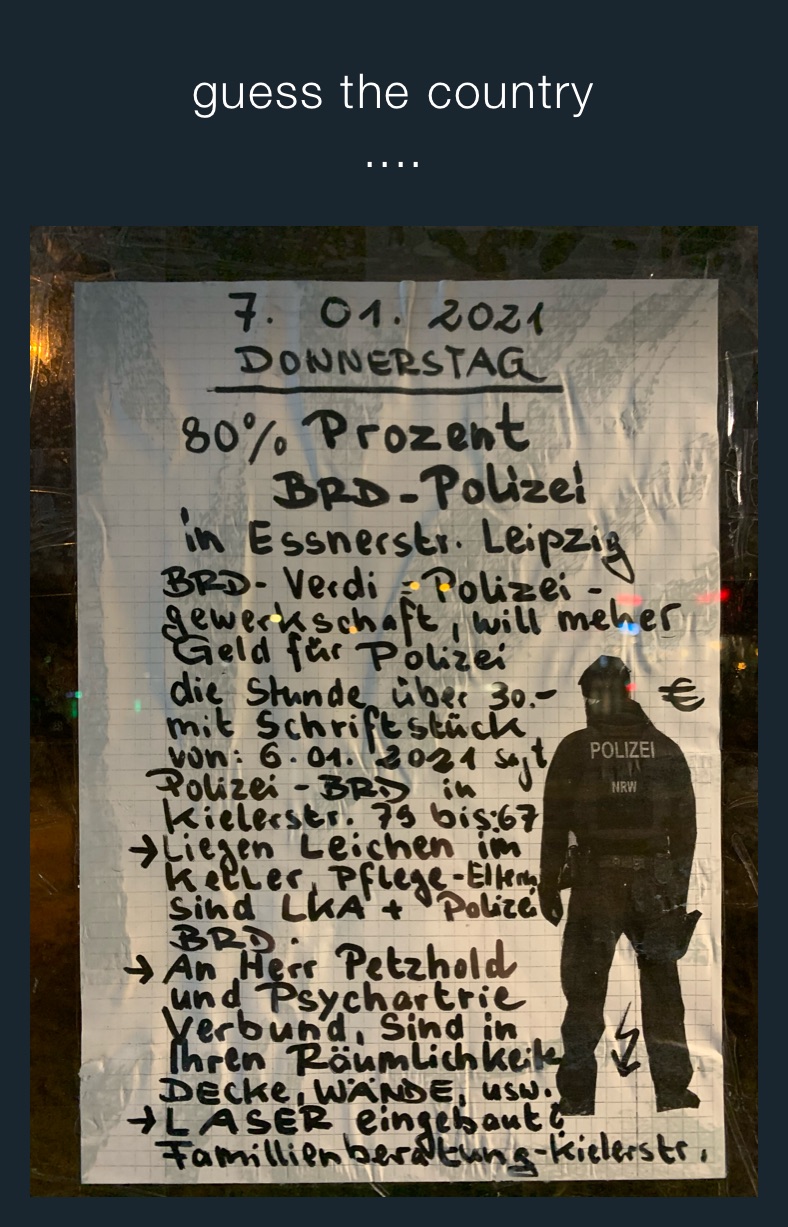 guess the country
....
7. 01. 2021
DONNERSTAG
80% Prozent
BRD-Polizei
in Essnerstr. Leipzig
BRD- Verdi = Polizei -
gewerkschaft, will meher
Geld für Polizei
die Stunde über 30.- €
mit Schriftstück
von: 6.01. 2021 sagt
Polizei - BRD in
Kielerstr. 79 bis:67
→ Liegen Leichen im
Keller, Pflege-Eltern
Sind LKA + Polizei
BRD.
→ An Herr Petzhold
und Psychartrie
Verbund, Sind in
Ihren Räumlichkeite
DECKE, WÄNDE, usw.
→ LASER eingebaut!
Famillienberatung-Kielerstr.
POLIZEI
NRW